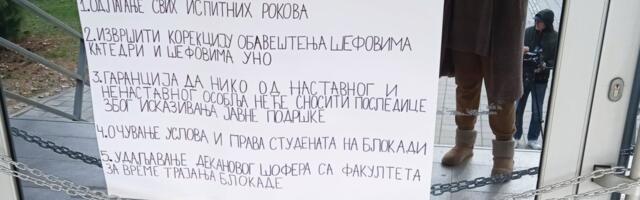 1. ОДЛАГАЊЕ СВИХ ИСПИТНИХ РОКОВА
2. ИЗВРШИТИ КОРЕКЦИЈУ ОБАВЕШТЕЊА ШЕФОВИМА
КАТЕДРИ И ШЕФОВИМА УНО
3. ГАРАНЦИЈА ДА НИКО ОД НАСТАВНОГ И
НЕНАСТАВНОГ ОСОБЉА НЕЋЕ СНОСИТИ ПОСЛЕДИЦЕ
ЗБОГ ИСКАЗИВАЊА ЈАВНЕ ПОДРШКЕ
4. ОЧУВАЊЕ УСЛОВА И ПРАВА СТУДЕНАТА НА БЛОКАДИ
5. УДАЉАВАЊЕ ДЕКАНОВОГ ШОФЕРА СА ФАКУЛТЕТА
ЗА ВРЕМЕ ТРАЈАЊА БЛОКАДЕ